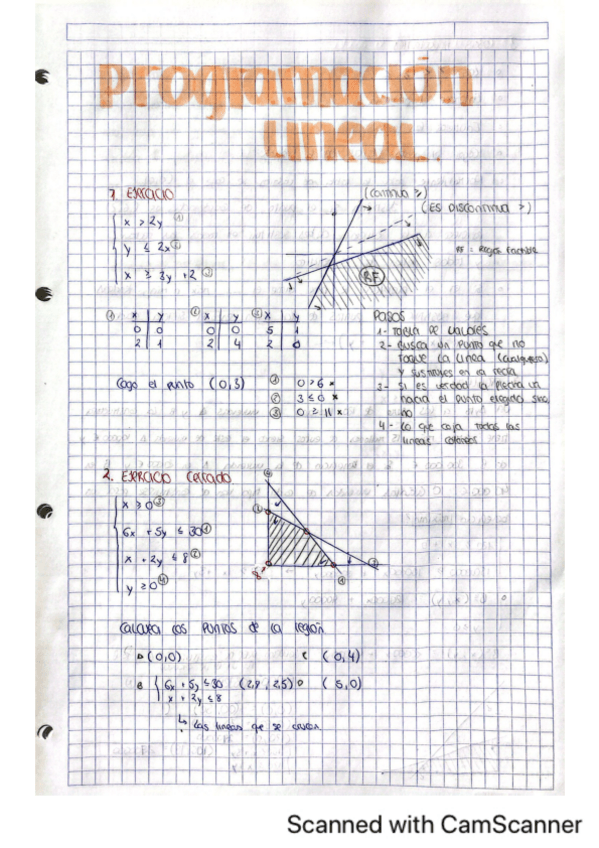 Programación
Lineal.
1. EJERCICIO
(continua ≥)
(ES DISCONTINUA >)
x > 2y ①
y ≤ 2x ②
x ≥ 3y + 2 ③
RF
RF = Región Factible
① x y ② x y ③ x y
0 0 0 0 5 1
2 1 2 4 2 0
PASOS
1- TABLA DE VALORES
2- Busca un Punto que no
toque la línea (cualquiera)
y sustituyes en la recta
3- Si es verdad la flecha va
hacia el punto elegido sino,
no
4- Lo que coja todas las
líneas
Cojo el punto (0,3)
① 0 > 6 x
② 3 ≤ 0 x
③ 0 ≥ 11 x
2. EJERCICIO Cerrado
x ≥ 0 ③
6x + 5y ≤ 30 ①
x + 2y ≤ 8 ②
y ≥ 0 ④
Calcula los puntos de la región
(0,0)
C (0,4)
B 6x + 5y ≤ 30 (2,9, 2,5) D (5,0)
x + 2y ≤ 8
↳ Las líneas que se cruzan.
Scanned with CamScanner